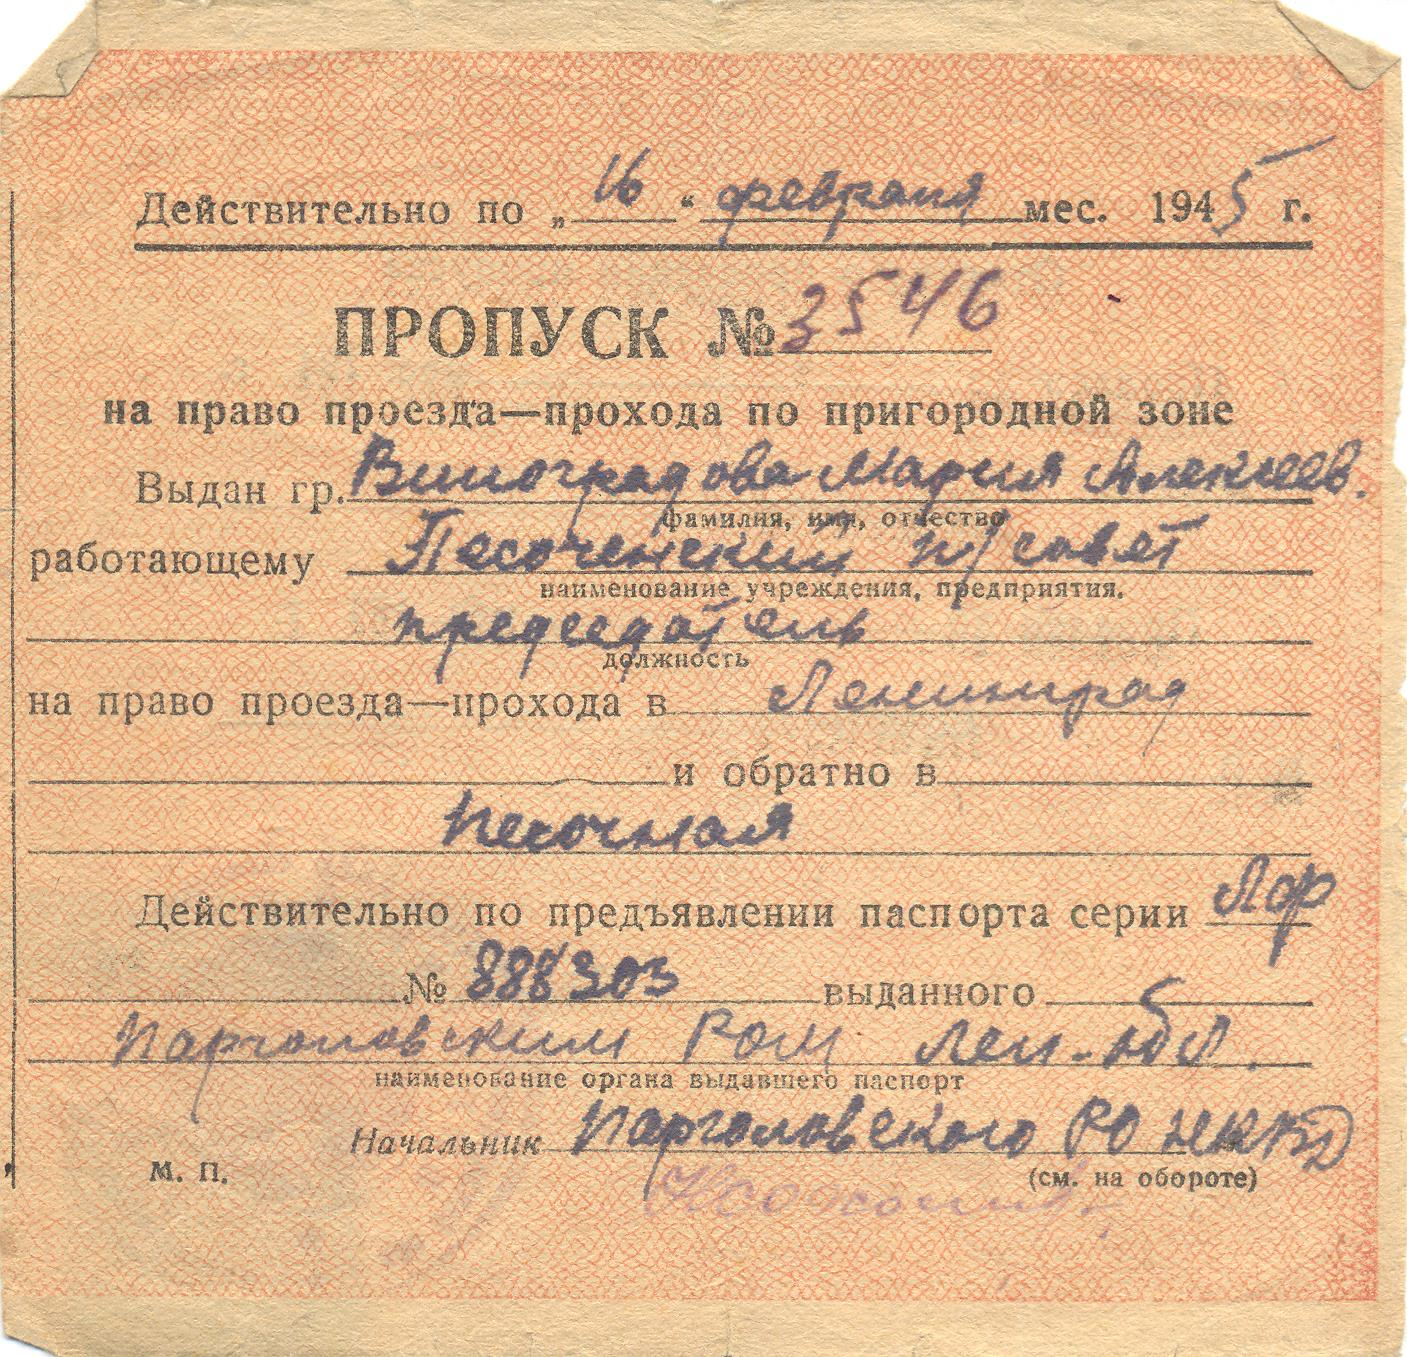 Действительно по „16“ февраля мес. 1945 г.
ПРОПУСК № 3546
на право проезда—прохода по пригородной зоне
Выдан гр. Виноградова Мария Алексеев.
фамилия, имя, отчество
работающему Песоченский п/совет
наименование учреждения, предприятия.
председатель
должность
на право проезда—прохода в Ленинград
и обратно в
Песочная
Действительно по предъявлении паспорта серии
№ 888303 выданного
Парголовским РОМ Лен. обл.
наименование органа выдавшего паспорт
Начальник Парголовского РО НКВД
М. П. (см. на обороте)